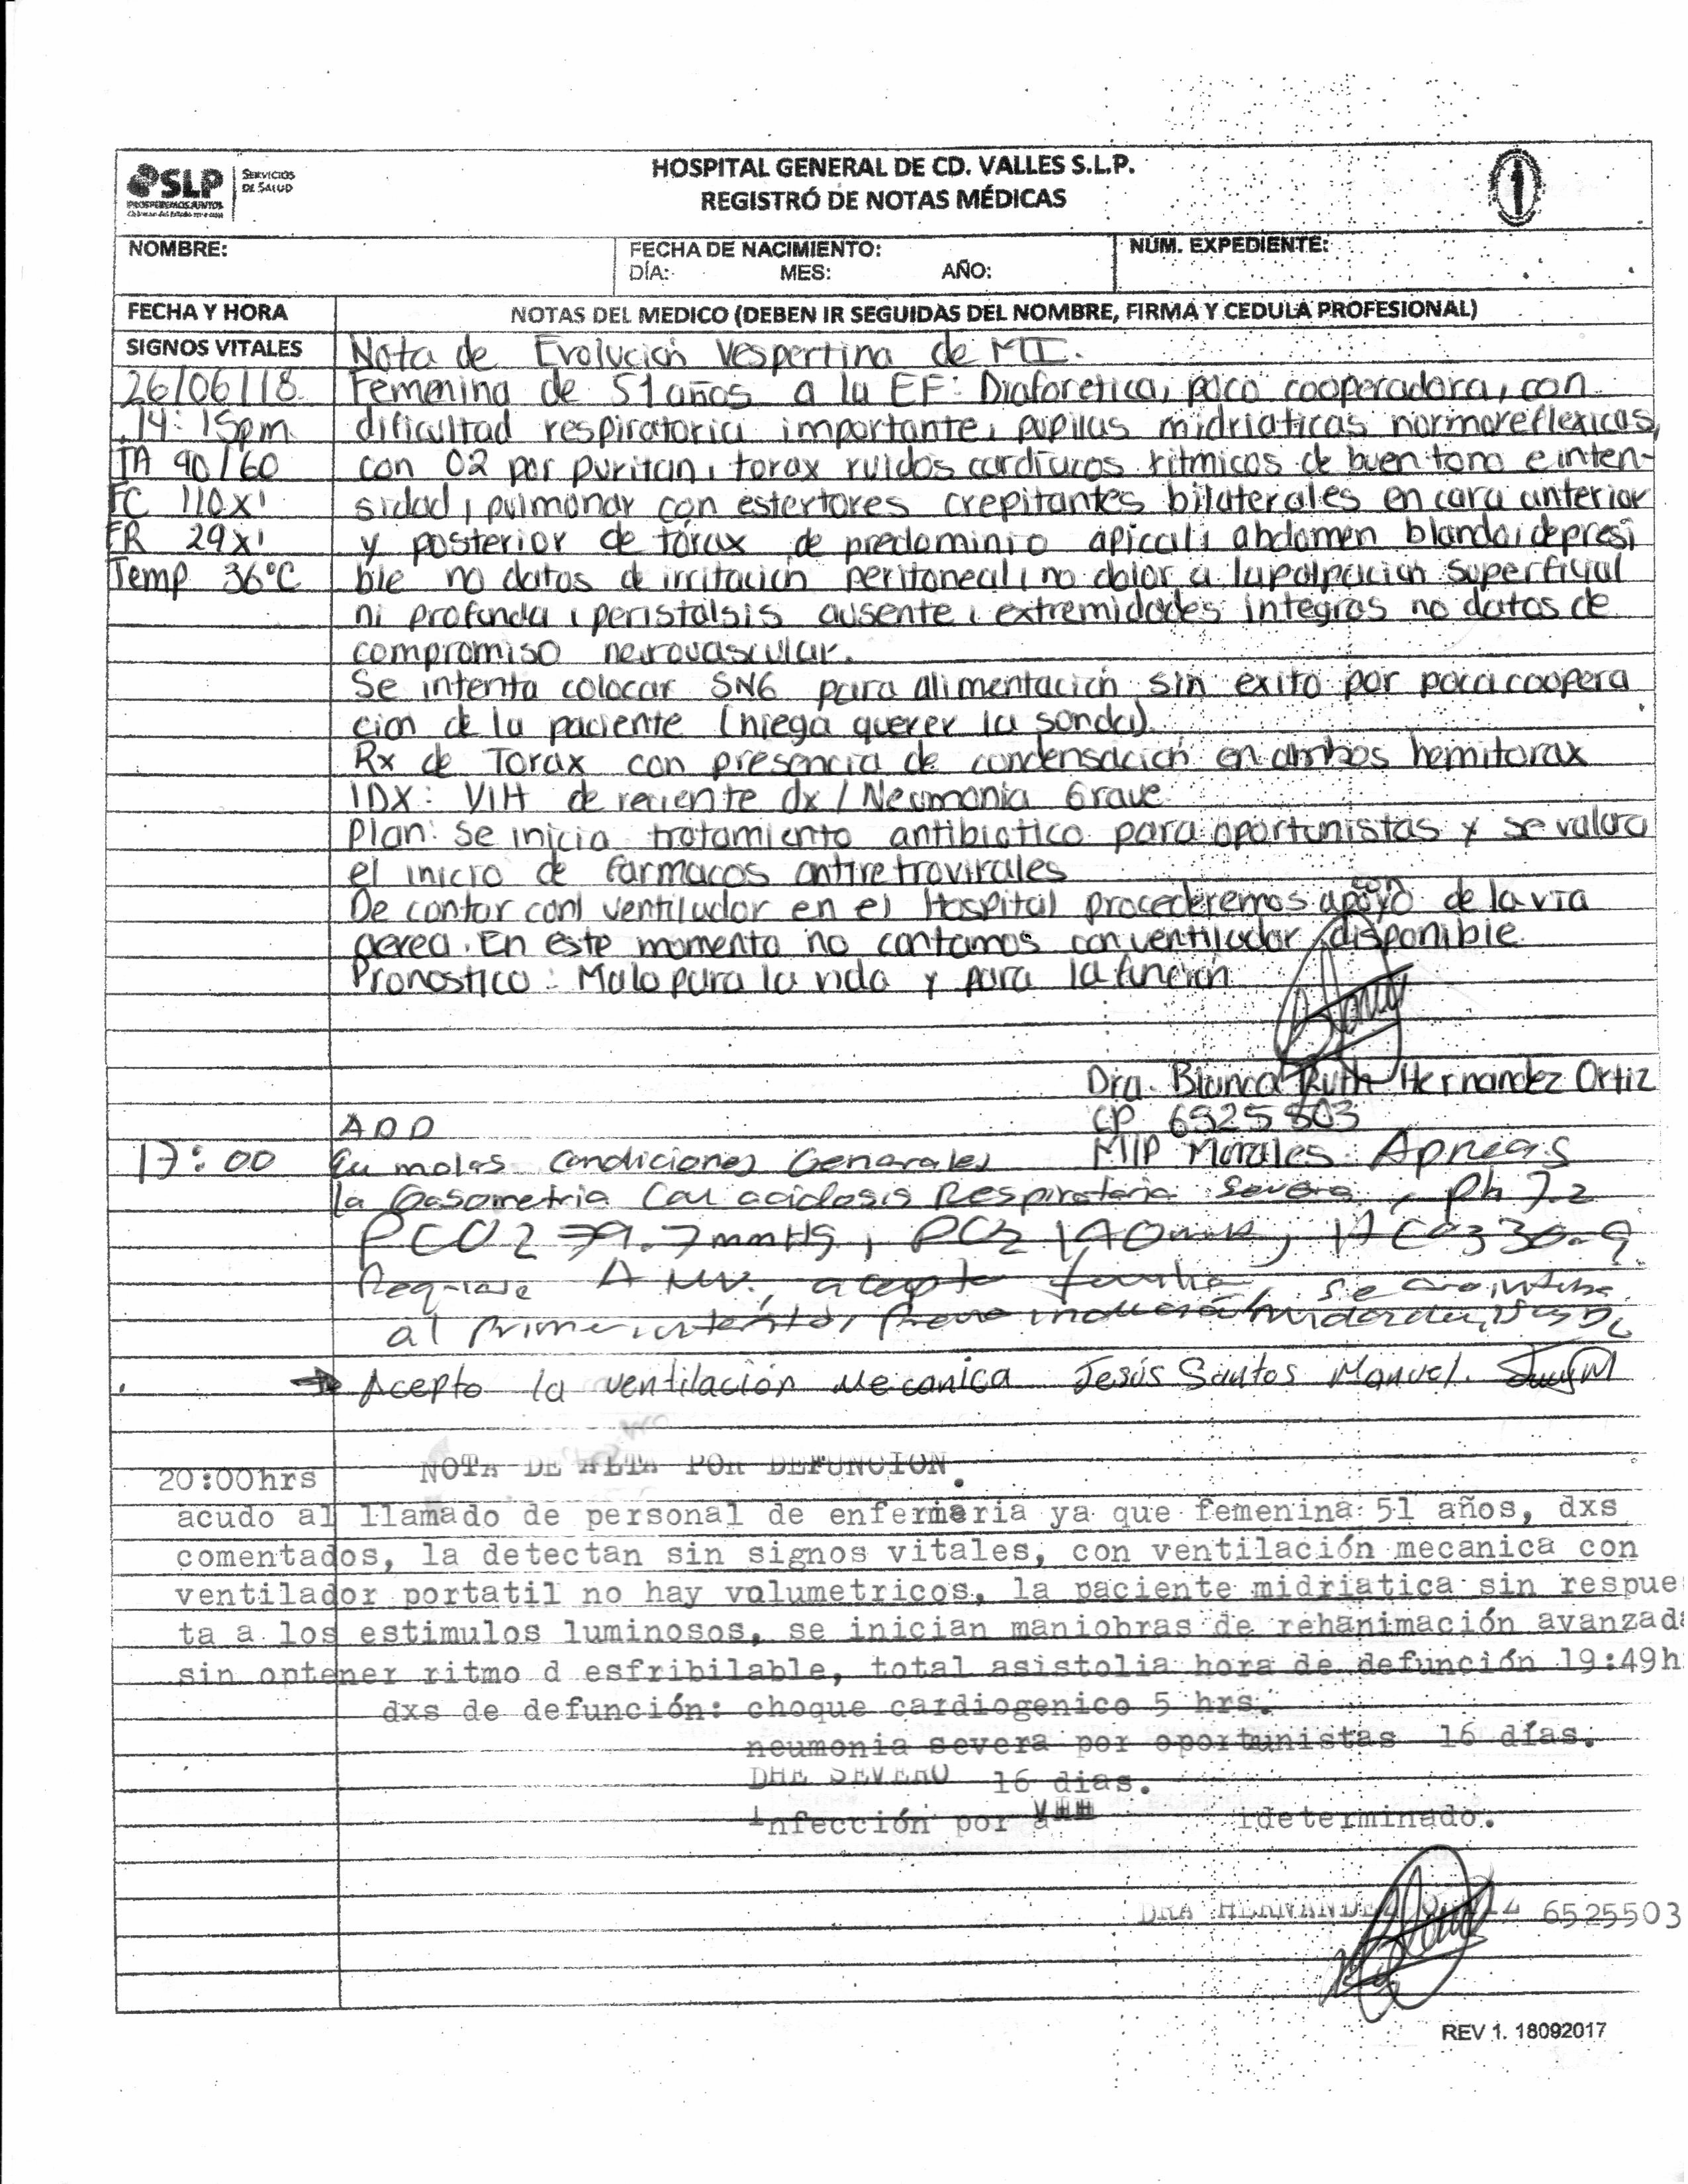 SLP SERVICIOS DE SALUD
PROSPEREMOS JUNTOS
HOSPITAL GENERAL DE CD. VALLES S.L.P.
REGISTRÓ DE NOTAS MÉDICAS
NOMBRE: FECHA DE NACIMIENTO: NÚM. EXPEDIENTE:
DÍA: MES: AÑO:
FECHA Y HORA NOTAS DEL MEDICO (DEBEN IR SEGUIDAS DEL NOMBRE, FIRMA Y CEDULA PROFESIONAL)
SIGNOS VITALES Nota de Evolución Vespertina de MI.
26/06/18 Femenina de 51 años a la EF: Diaforetica, poco cooperadora, con
14:15pm dificultad respiratoria importante, pupilas midriaticas normoreflexicas,
TA 90/60 con O2 por puritan, torax ruidos cardiacos ritmicos de buen tono e inten-
FC 110x' sidad, pulmonar con estertores crepitantes bilaterales en cara anterior
FR 29x' y posterior de tórax de predominio apical, abdomen blando, depresi
Temp 36°C ble no datos de irritación peritoneal, no dolor a la palpación superficial
ni profunda, peristalsis ausente, extremidades integras no datos de
compromiso neurovascular.
Se intenta colocar SNG para alimentación sin exito por poca coopera
cion de la paciente (niega querer la sonda).
Rx de Torax con presencia de condensación en ambos hemitorax
IDX: VIH de reciente dx / Neumonia Grave
Plan: Se inicia tratamiento antibiotico para oportunistas y se valora
el inicio de farmacos antiretrovirales
De contar con ventilador en el Hospital procederemos con apoyo de la vía
aerea. En este momento no contamos con ventilador disponible.
Pronostico: Malo para la vida y para la función
Dra. Blanca Ruth Hernandez Ortiz
CP 6525503
ADD
MIP Morales
17:00 En malas condiciones Generales Apneas
la Gasometria con acidosis Respiratoria severa, ph 7.2
PCO2 79.7mmHg, PO2 190mmHg, HCO3 30.9
Requiere AMV., acepta familia, se intuba
al primer intento, previa inducción midazolam
Acepto la ventilación Mecanica Jesús Santos Manuel.
20:00hrs NOTA DE ALTA POR DEFUNCION.
acudo al llamado de personal de enfermeria ya que femenina 51 años, dxs
comentados, la detectan sin signos vitales, con ventilación mecanica con
ventilador portatil no hay volumetricos, la paciente midriatica sin respue
ta a los estimulos luminosos, se inician maniobras de rehanimación avanzada
sin optener ritmo d esfribilable, total asistolia hora de defunción 19:49h
dxs de defunción: choque cardiogenico 5 hrs.
neumonia severa por oportunistas 16 días.
DHE SEVERO 16 dias.
infección por VIH ideterminado.
DRA HERNANDEZ 6525503
REV 1. 18092017